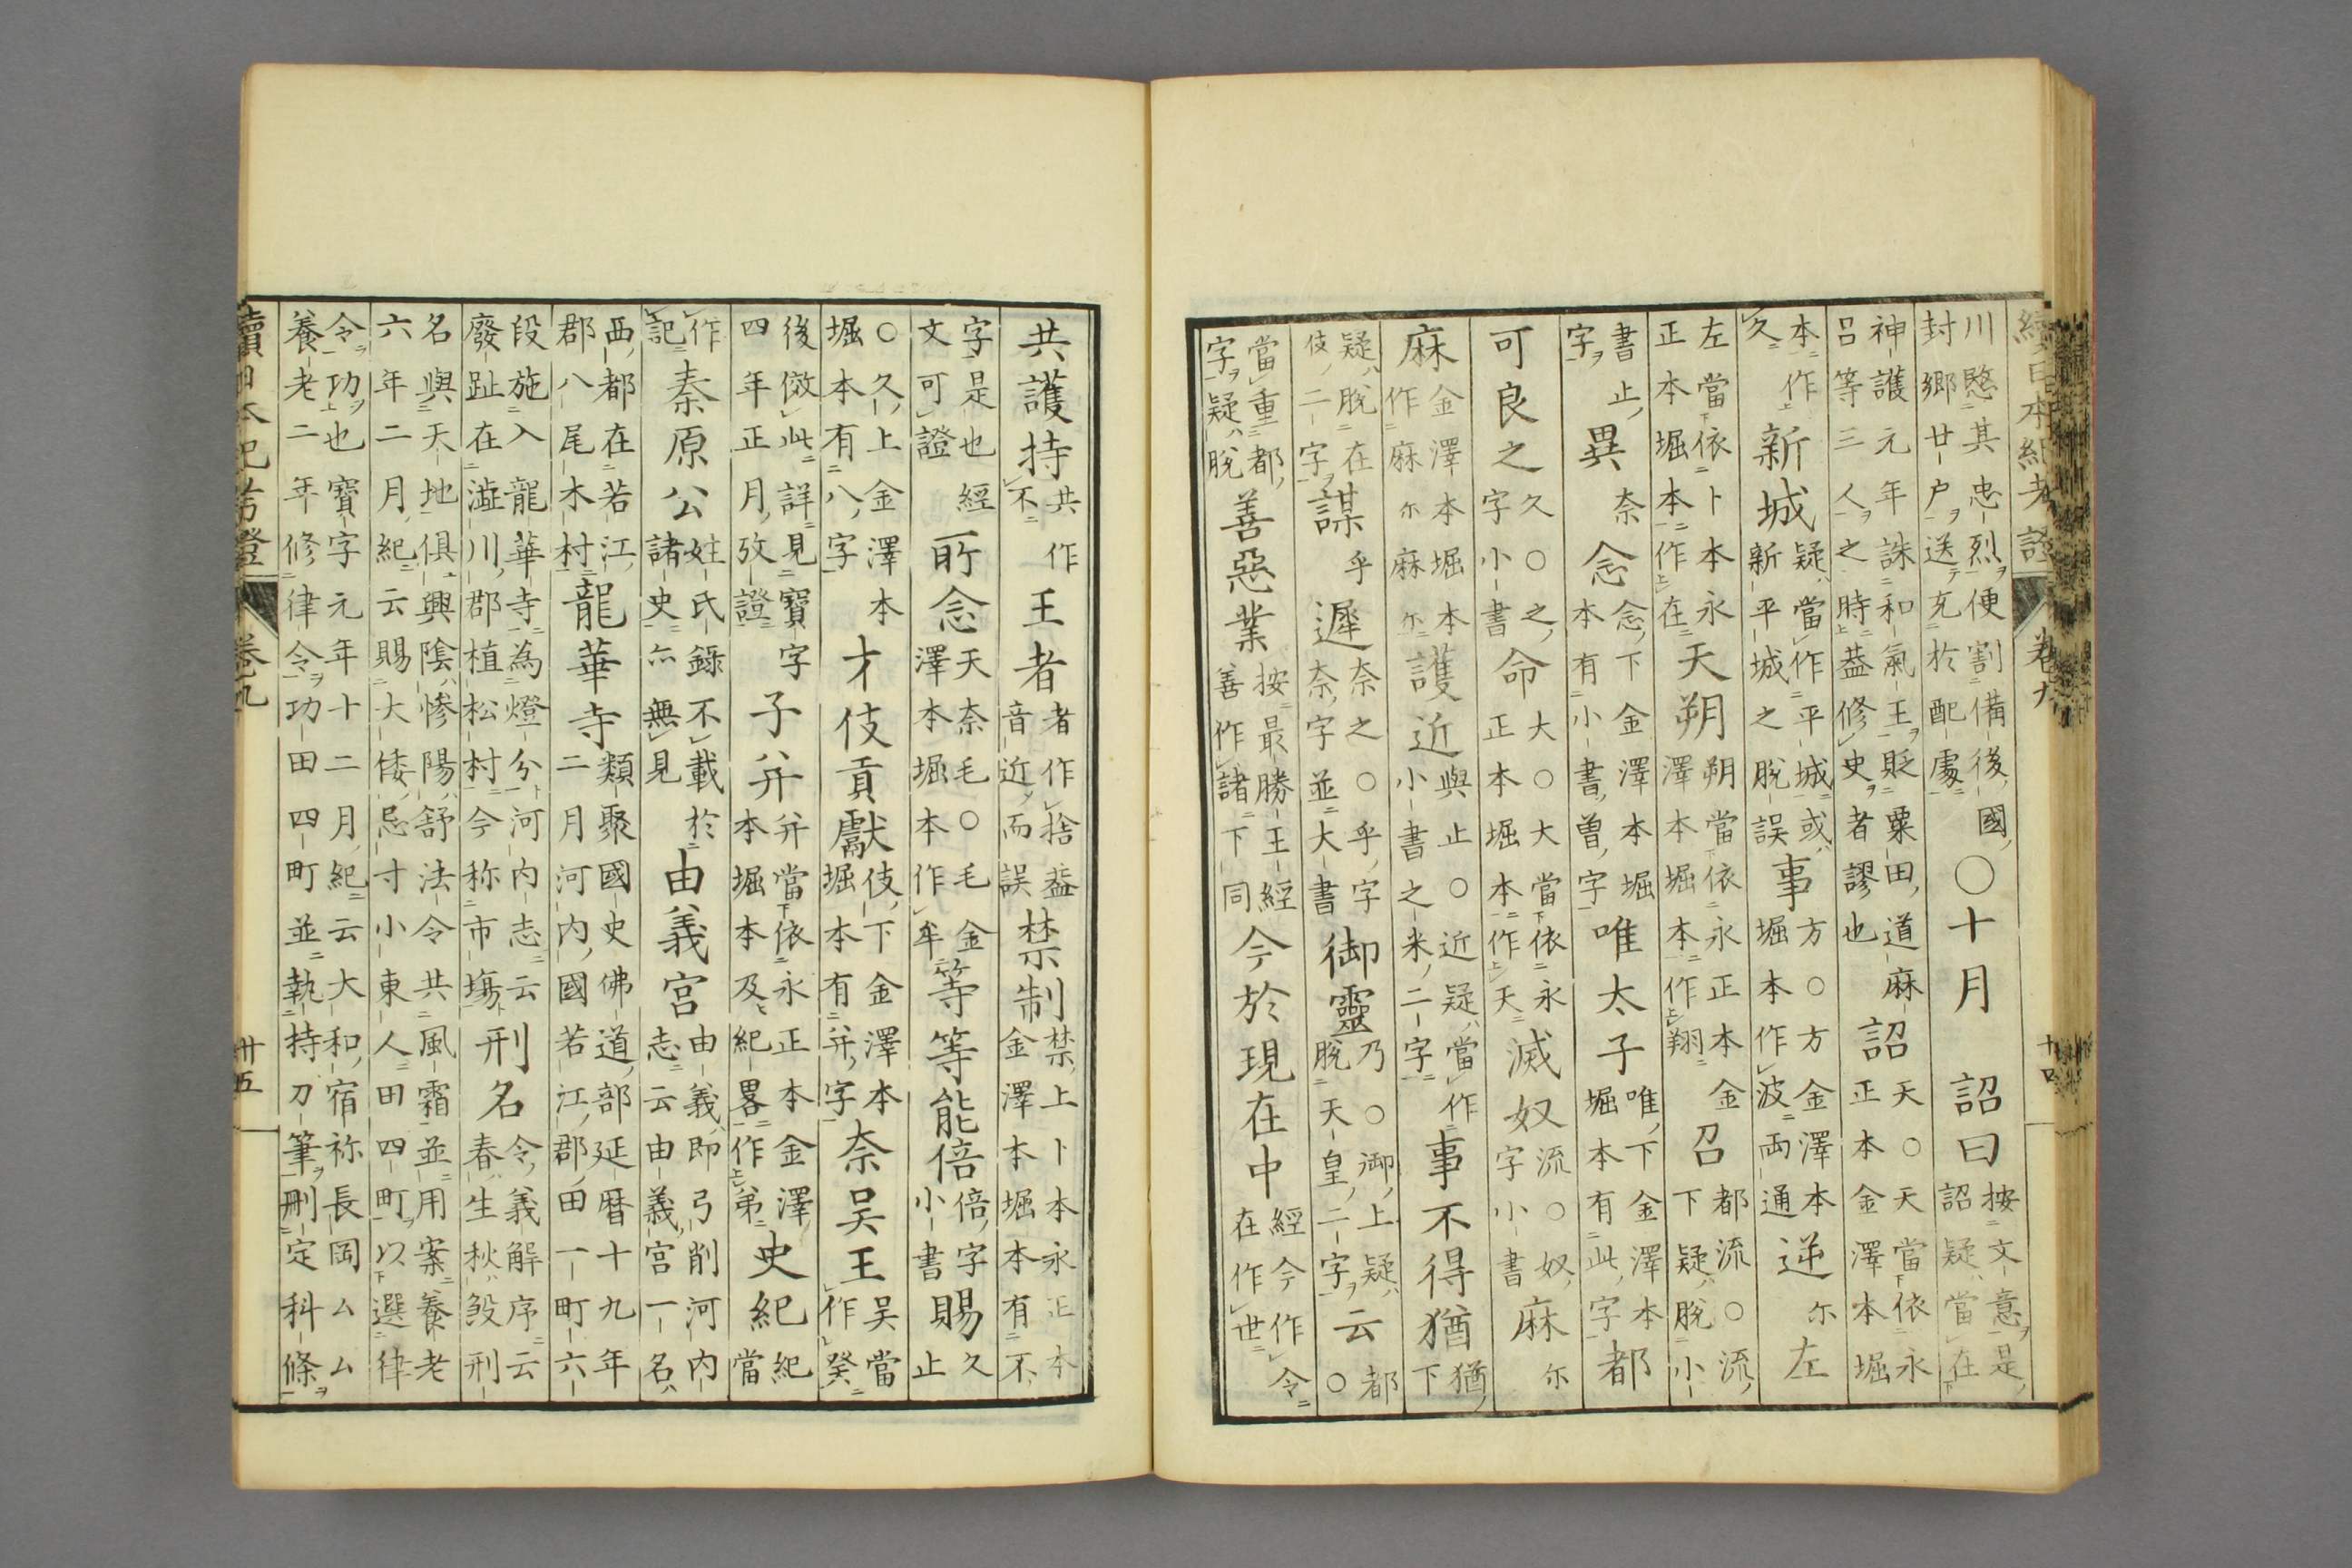 續日本紀考證 卷九 十四
川愍其忠烈便割備後國封郷廿戸送充於配處〇十月詔曰按文意是詔疑當在
神護元年誅和氣王貶粟田道麻呂等三人之時葢修史者謬也詔天〇天當依永正本金澤本堀
本作久新城疑當作平城或新平城之脱誤事方〇方金澤本堀本作波兩通逆尓左
左當依卜本永正本堀本作在天朔朔當依永正本金澤本堀本作翔召都流〇流下疑脱小
書止字異奈念念下金澤本堀本有小書曽字唯太子唯下金澤本堀本有此字都
可良之久〇之字小書命大〇大當依永正本堀本作天滅奴流〇奴字小書麻尓
麻金澤本堀本作麻尓麻尓護近與止〇近疑當作小書之米二字事不得猶猶下
疑脱在伎二字謀乎遲奈之〇乎字奈字並大書御靈乃〇御上疑脱天皇二字云都〇
當重都字疑脱善惡業按最勝王經善作諸下同今於現在中經今作令在作世
共護持共作不王者者作捨葢音近而誤禁制禁上卜本永正本金澤本堀本有不
字是也經文可證所念天奈毛〇毛金澤本堀本作牟等等能倍倍字小書賜久止
〇久上金澤本堀本有八字才伎貢獻伎下金澤本堀本有并字奈吴王吴當作癸
後倣此詳見寳字四年正月攷證子并并當依永正本金澤本堀本及紀畧作弟史紀紀當
作記秦原公姓氏錄不載於諸史亦無見由義宮由義即弓削河内志云由義宮一名
西都在若江郡八尾木村龍華寺類聚國史佛道部延暦十九年二月河内國若江郡田一町六
段施入龍華寺為燈分河内志云廢趾在澁川郡植松村今称市塲刑名令義解序云春生秋殺刑
名與天地俱興陰惨陽舒法令共風霜並用案養老六年二月紀云賜大倭忌寸小東人田四町以選律
令功也寳字元年十二月紀云大和宿祢長岡ムム養老二年修律令功田四町並執持刀筆刪定科條
續日本紀考證 卷九 廿五